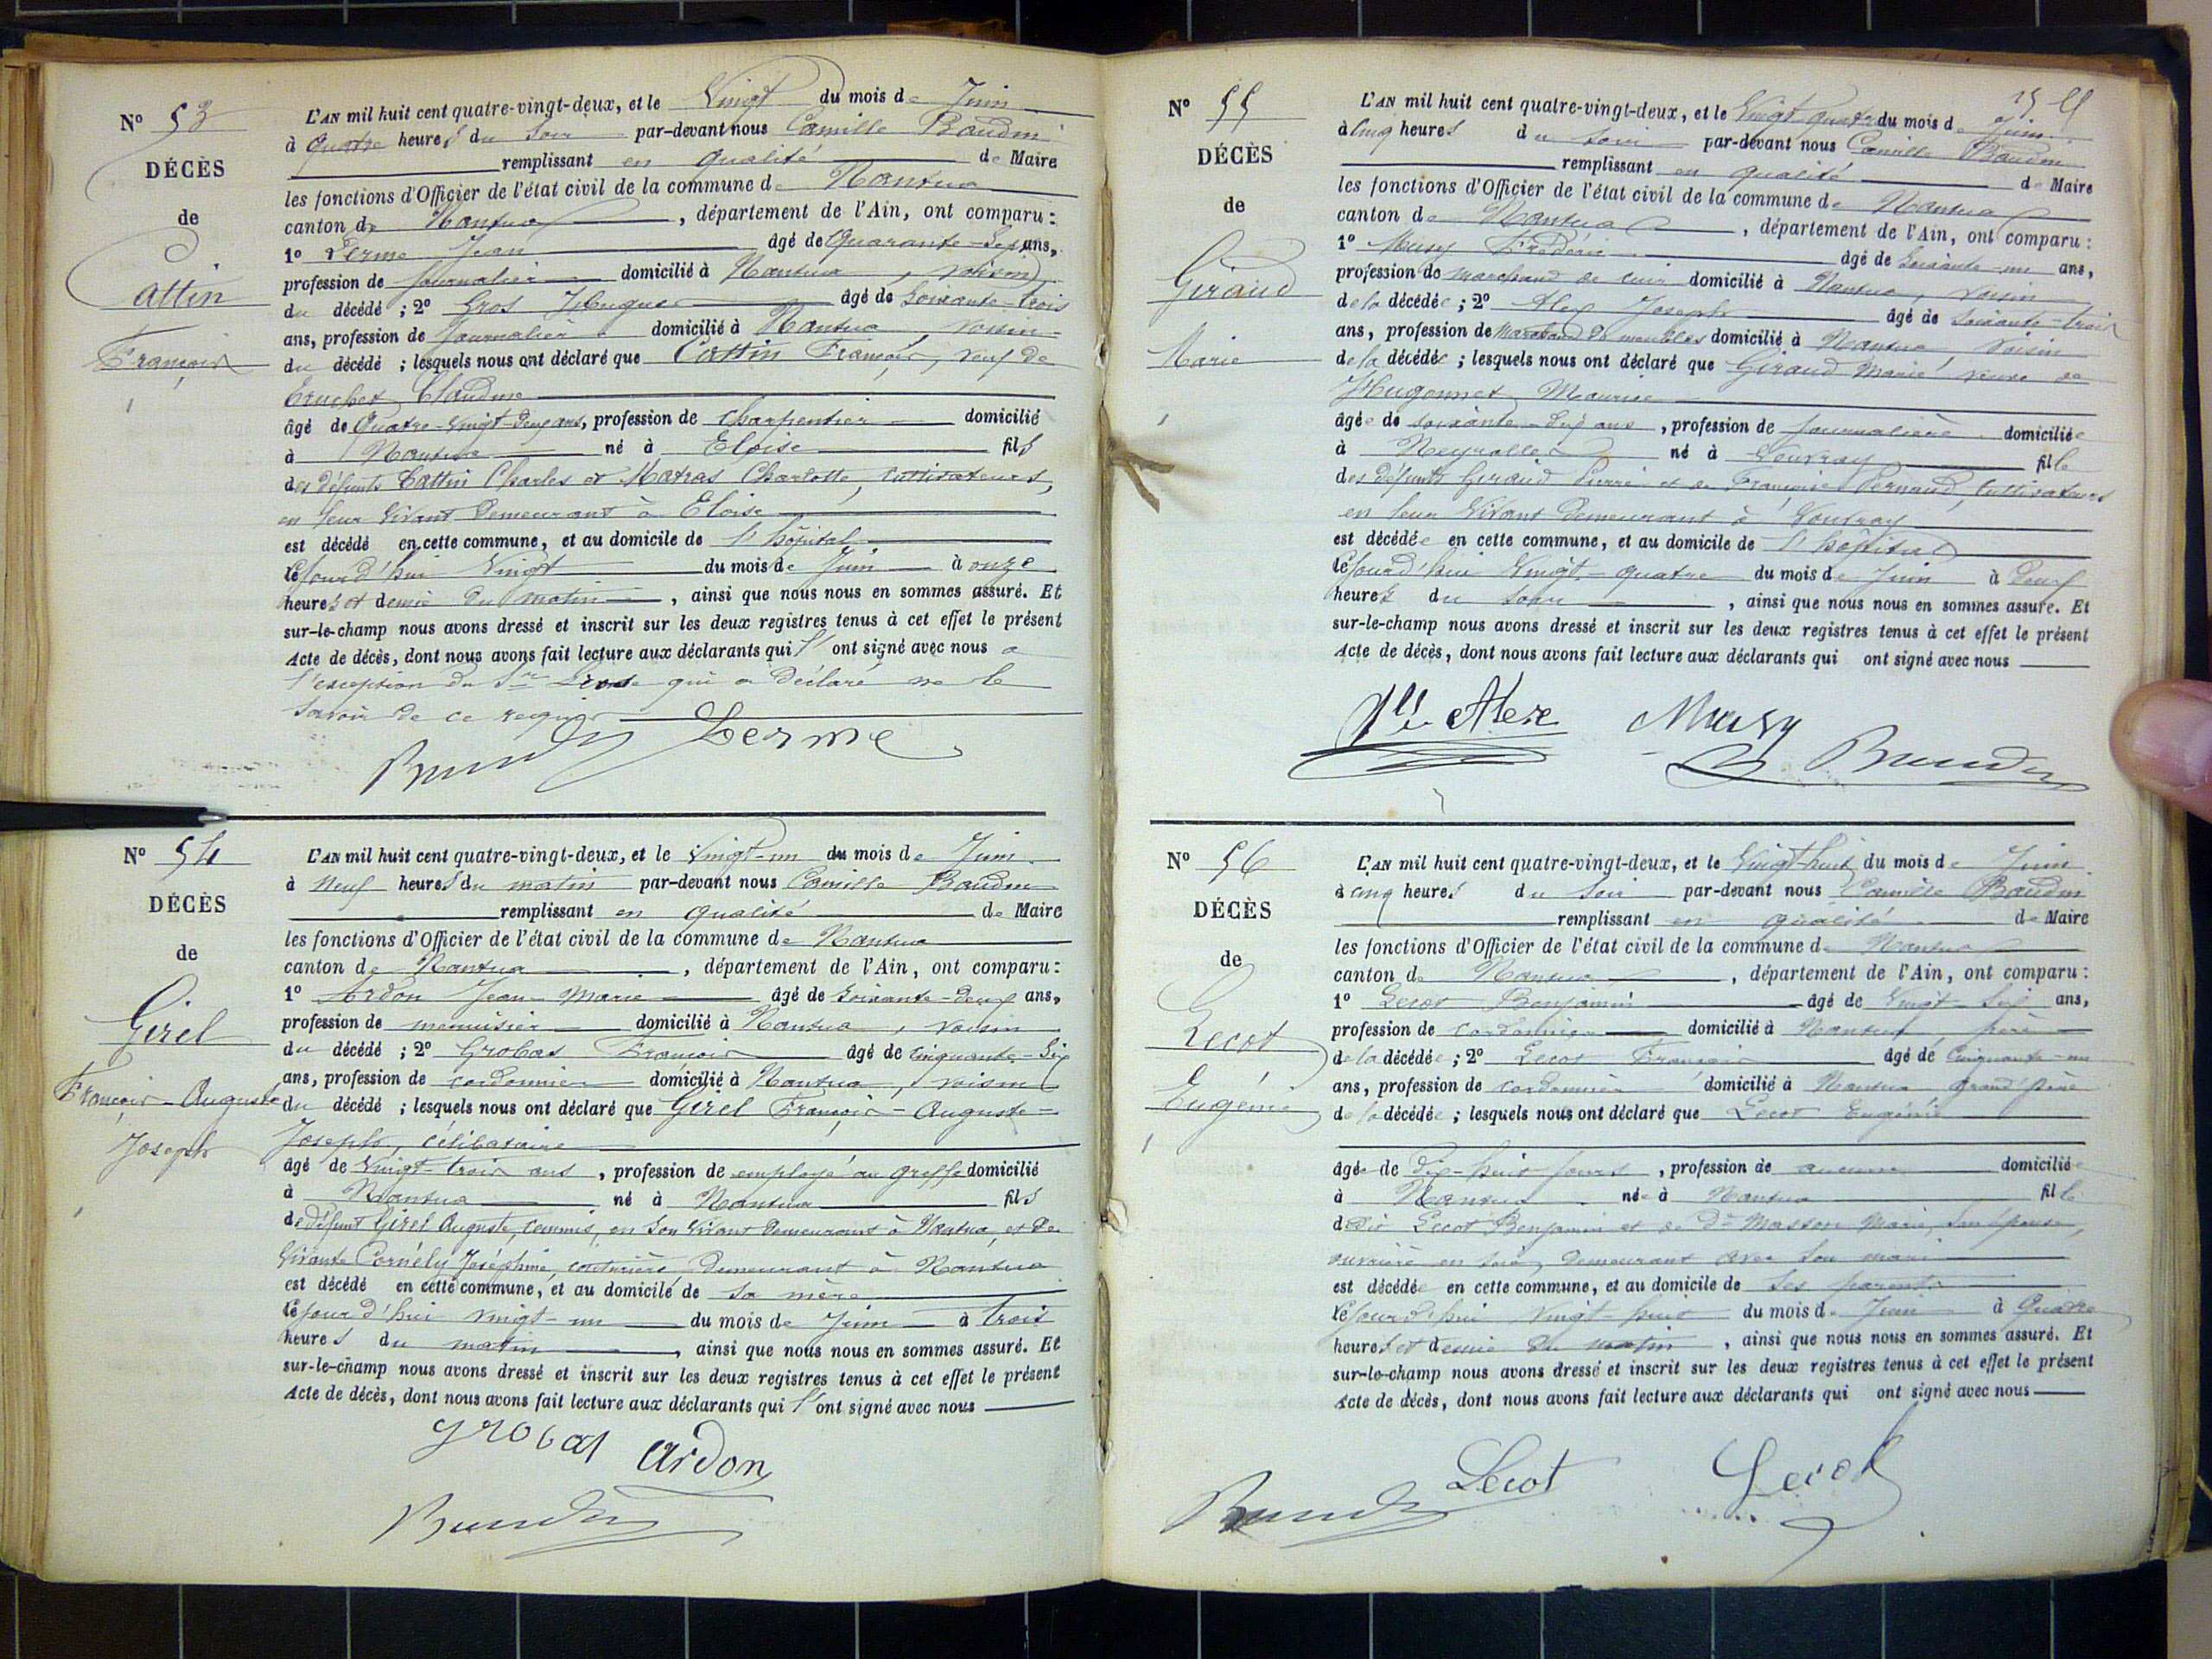 N° 53
DÉCÈS
de
Cattin
François
L'AN mil huit cent quatre-vingt-deux, et le Vingt du mois de Juin
à quatre heures du soir par-devant nous Camille Baudin
remplissant en qualité de Maire
les fonctions d'Officier de l'état civil de la commune de Nantua
canton de Nantua, département de l'Ain, ont comparu :
1° Lerme Jean âgé de Quarante-Sept ans,
profession de journalier domicilié à Nantua, voisin
du décédé ; 2° Gros Hugues âgé de Soixante-trois
ans, profession de journalier domicilié à Nantua, voisin
du décédé ; lesquels nous ont déclaré que Cattin François, veuf de
Claudine
âgé de Quatre-Vingt-Deux ans, profession de charpentier domicilié
à Nantua né à Eloise fils
des défunts Cattin Charles et Matras Charlotte, cultivateurs,
en leur vivant demeurant à Eloise
est décédé en cette commune, et au domicile de l'hôpital
cejourd'hui Vingt du mois de Juin à onze
heures et demie du matin, ainsi que nous nous en sommes assuré. Et
sur-le-champ nous avons dressé et inscrit sur les deux registres tenus à cet effet le présent
Acte de décès, dont nous avons fait lecture aux déclarants qui l'ont signé avec nous a
l'exception du Sr qui a déclaré ne le
savoir de ce requis
Baudin Lerme
N° 54
DÉCÈS
de
Girel
François-Auguste
Joseph
L'AN mil huit cent quatre-vingt-deux, et le Vingt-un du mois de Juin
à Neuf heures du matin par-devant nous Camille Baudin
remplissant en qualité de Maire
les fonctions d'Officier de l'état civil de la commune de Nantua
canton de Nantua, département de l'Ain, ont comparu :
1° Ardon Jean-Marie âgé de Soixante-deux ans,
profession de menuisier domicilié à Nantua, voisin
du décédé ; 2° Grobas François âgé de cinquante-Six
ans, profession de cordonnier domicilié à Nantua, voisin
du décédé ; lesquels nous ont déclaré que Girel François-Auguste-
Joseph, célibataire
âgé de Vingt-trois ans, profession de employé au greffe domicilié
à Nantua né à Nantua fils
de défunt Girel Auguste, commis, en son vivant demeurant à Nantua, et de
vivante Cornély Joséphine, couturière demeurant à Nantua
est décédé en cette commune, et au domicile de sa mère
cejourd'hui vingt-un du mois de Juin à trois
heures du matin, ainsi que nous nous en sommes assuré. Et
sur-le-champ nous avons dressé et inscrit sur les deux registres tenus à cet effet le présent
Acte de décès, dont nous avons fait lecture aux déclarants qui l'ont signé avec nous
Grobas Ardon
Baudin
N° 55
DÉCÈS
de
Giraud
Marie
L'AN mil huit cent quatre-vingt-deux, et le Vingt-quatre du mois de Juin
à cinq heures du soir par-devant nous Camille Baudin
remplissant en qualité de Maire
les fonctions d'Officier de l'état civil de la commune de Nantua
canton de Nantua, département de l'Ain, ont comparu :
1° Musy Frédéric âgé de Soixante-un ans,
profession de marchand de cuir domicilié à Nantua, voisin
de la décédée ; 2° Alex Joseph âgé de soixante-trois
ans, profession de marchand de meubles domicilié à Nantua, voisin
de la décédée ; lesquels nous ont déclaré que Giraud Marie, veuve de
Hugonnet Maurice
âgée de soixante-dix ans, profession de journalière domiciliée
à Neyrolles né à fille
des défunts Giraud Pierre et de Françoise Pernaud, cultivateurs
en leur vivant demeurant à
est décédée en cette commune, et au domicile de l'hôpital
cejourd'hui Vingt-quatre du mois de Juin à Deux
heures du soir, ainsi que nous nous en sommes assuré. Et
sur-le-champ nous avons dressé et inscrit sur les deux registres tenus à cet effet le présent
Acte de décès, dont nous avons fait lecture aux déclarants qui ont signé avec nous
Alex Musy
Baudin
N° 56
DÉCÈS
de
Lecot
Eugénie
L'AN mil huit cent quatre-vingt-deux, et le Vingt-huit du mois de Juin
à cinq heures du soir par-devant nous Camille Baudin
remplissant en qualité de Maire
les fonctions d'Officier de l'état civil de la commune de Nantua
canton de Nantua, département de l'Ain, ont comparu :
1° Lecot Benjamin âgé de Vingt-Six ans,
profession de cordonnier domicilié à Nantua, père
de la décédée ; 2° Lecot François âgé de Cinquante-un
ans, profession de cordonnier domicilié à Nantua grand'père
de la décédée ; lesquels nous ont déclaré que Lecot Eugénie
âgée de Dix-huit jours, profession de aucune domiciliée
à Nantua née à Nantua fille
de dit Lecot Benjamin et de De Masson Marie, son épouse,
ouvrière en soie, demeurant avec son mari
est décédée en cette commune, et au domicile de ses parents
cejourd'hui Vingt-huit du mois de Juin à Quatre
heures et demie du matin, ainsi que nous nous en sommes assuré. Et
sur-le-champ nous avons dressé et inscrit sur les deux registres tenus à cet effet le présent
Acte de décès, dont nous avons fait lecture aux déclarants qui ont signé avec nous
Baudin Lecot Lecot